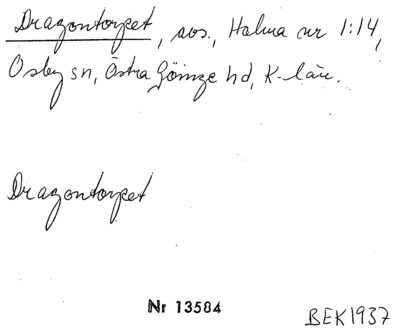 Dragontorpet, avs., Halma nr 1:14,
Osby sn, Östra Göinge hd, K-län.
Dragontorpet
Nr 13584
BEK 1937